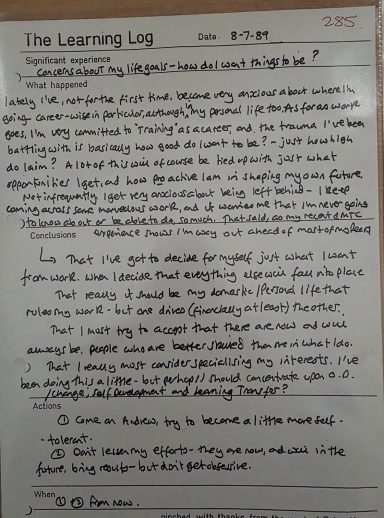 285.
The Learning Log Date: 8-7-89
Significant experience
concerns about my life goals - how do I want things to be?
What happened
lately I've, not for the first time, become very anxious about where I'm
going - career-wise in particular, although, in my personal life too. As far as work
goes, I'm very committed to "training" as a career, and, the trauma I've been
battling with is basically how good do I want to be? - just how high
do I aim? A lot of this will of course be tied up with just what
opportunities I get, and how proactive I am in shaping my own future.
Not infrequently I get very anxious about being left behind - I keep
coming across some marvellous work, and it worries me that I'm never going
to know about or be able to do, so much. That said, so my recent
experience shows I'm way out ahead of most of my peers
Conclusions
That I've got to decide for myself just what I want
from work. When I decide that everything else will fall into place
That really it should be my domestic/personal life that
rules my work - but one drives (financially at least) the other.
That I must try to accept that there are now and will
always be, people who are better skilled than me in what I do.
That I really must consider specialising my interests. I've
been doing this a little - but perhaps I should concentrate upon O.D.
/change, self Development and learning Transfer?
Actions
① Come on Andrew, try to become a little more self-
-tolerant.
② Don't lessen my efforts - they are now, and will in the
future, bring results - but don't get obsessive.
When
① ② from now.
pinched with thanks from the